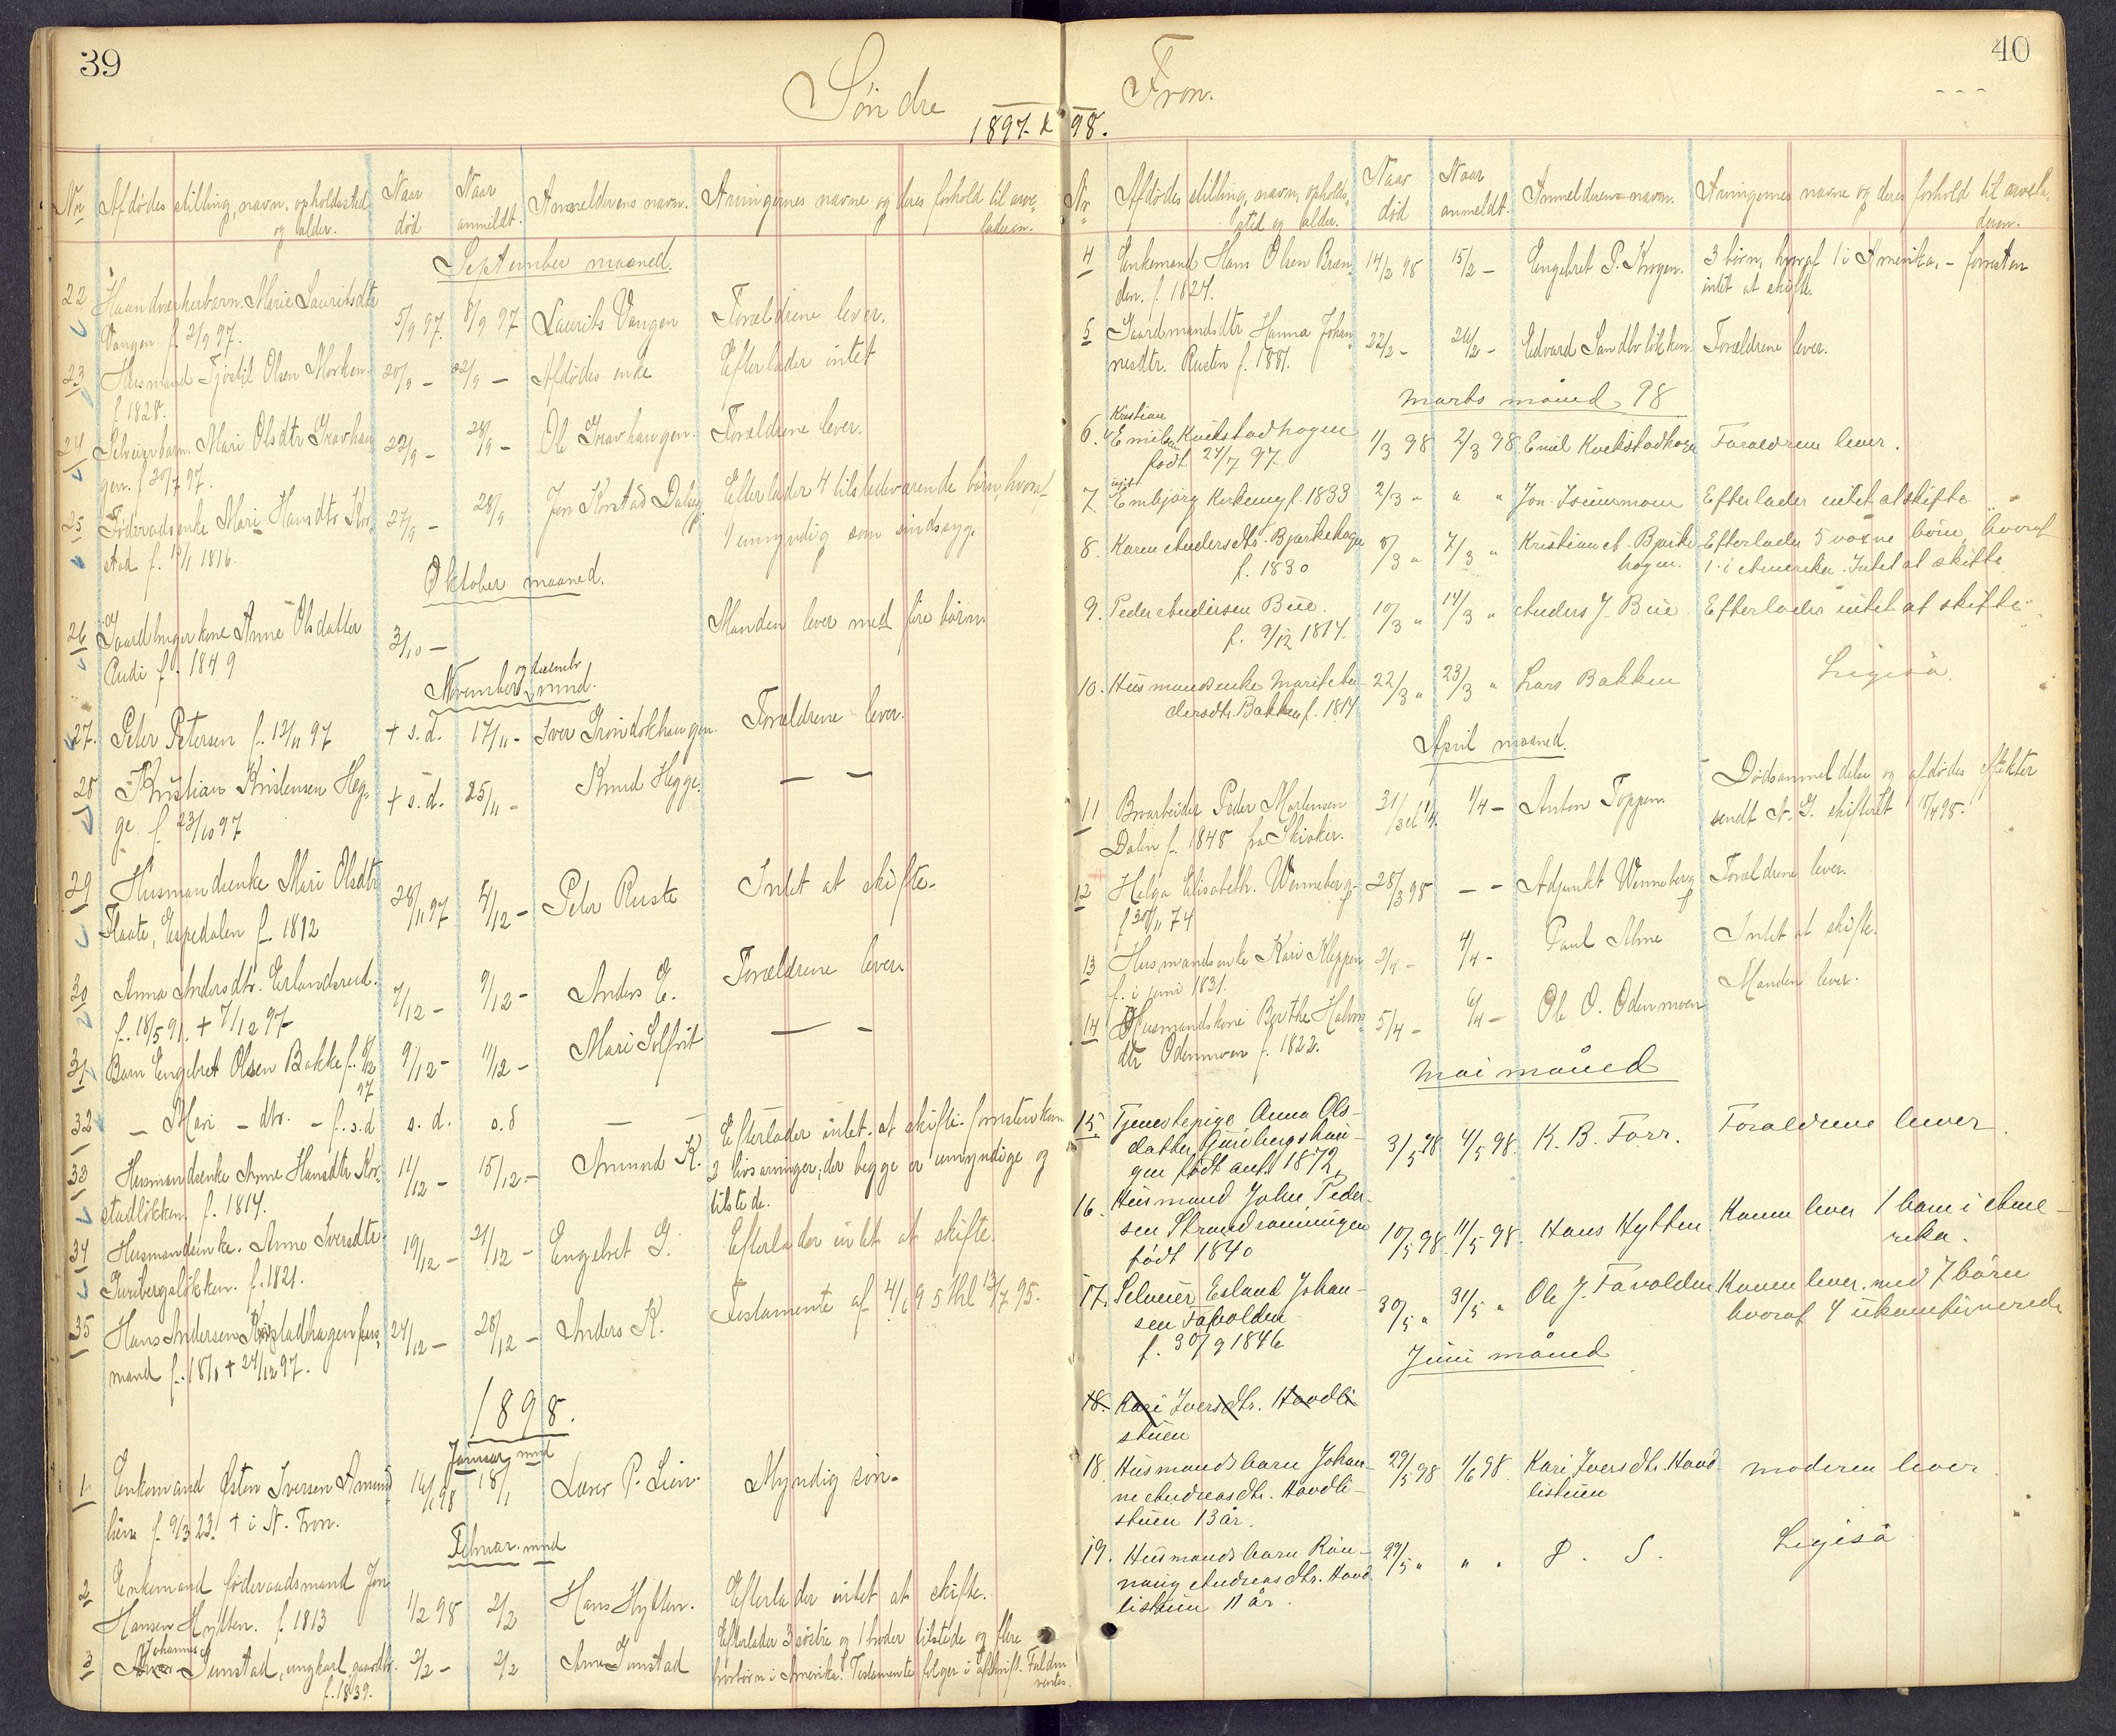 39
Søndre
1897 &
Nr
Afdødes stilling, navn, opholdssted
og alder.
Naar
død
Naar
anmeldt.
Anmelderens navn.
Arvingernes navne og deres forhold til arve-
laderen.
September maaned.
22
Haandværkerbarn Marie Lauritsdtr
Vangen f. 2/9 97.
5/9 97.
8/9 97
Laurits Vangen
Forældrene lever.
23
Husmand Tjøstil Olsen Morken
f. 1828.
20/9 -
22/9 -
Afdødes enke
Efterlader intet
24
Selveierbarn Mari Olsdtr Gravhau-
gen. f 20/7 97.
22/9 -
28/9 -
Ole Gravhaugen.
Forældrene lever.
25
Føderaadsenke Mari Hansdtr Kor-
stad f. 1816.
27/9 -
28/9
Jon Korstad Dalseg.
Efterlader 4 tilstedeværende børn, hvoraf
1 umyndig som sindssyg.
Oktober maaned.
26
Gaardbrugerkone Anne Olsdatter
Audi f. 1849
3/10 -
Manden lever med fire børn.
November og decembr mnd.
27.
Peter Petersen f. 12/11 97
+ s. d.
17/11 -
Iver Grøndokhaugen.
Forældrene lever.
28
Kristian Kristensen Heg-
ge f. 23/10 97
+ s. d.
25/11 -
Knud Hegge.
— —
29
Husmandsenke Mari Olsdtr
Flaate, Espedalen f. 1812
28/11 97
4/12 -
Peter Ruste
Intet at skifte.
30
Anna Andersdtr. Erlandsrud.
f. 18/5 91. + 7/12 97
7/12 -
9/12 -
Anders E.
Forældrene lever
31
Barn Engebret Olsen Bakke f. 8/12
97
9/12 -
11/12 -
Mari Solfrit
— -
32
— Mari - dtr. - f. s. d
s. d.
s. d
—
—
33
Husmandsenke Anne Hansdtr Kor-
stadløkken. f. 1814.
11/12 -
15/12 -
Amund K.
Efterlader intet at skifte. forresten kun
2 livsarvinger, der begge er umyndige og
tilstede.
34
Husmandsenke. Anne Iversdtr.
Guribergsløkken. f. 1821.
19/12 -
21/12 -
Engebret G.
Efterlader intet at skifte.
35
Hans Andersen Korstadhagen hus-
mand + 24/12 97.
24/12 -
28/12 -
Anders K.
Testamente af 4/6 95 thl 13/7 95.
1898.
Januar mnd
1
Enkemand Østen Iversen Amund
lien f. 9/3 23. + i N. Fron.
14/1 98
18/1
Laver P. Lien.
Myndig søn.
Februar. mnd
2
Enkemand føderaadsmand Jon
Hansen Hytten. f. 1813
1/2 98
2/2
Hans Hytten.
Efterlader intet at skifte.
3
Johannes
Sunstad, ungkarl, gaardbr.
f. 1839.
2/2 -
2/2
Arne Sunstad
Efterlader 3 søstre og 1 broder tilstede og flere
i Amerika. Testamente følger i afskrift. Fuldm
ventes.
40
Fron.
98.
Nr
Afdødes stilling, navn, opholds-
sted og alder.
Naar
død
Naar
anmeldt.
Anmelderens navn.
Arvingernes navne og deres forhold til arvela-
deren.
4
Enkemand Hans Olsen Bræn-
den. f. 1824.
14/2 98
15/2 -
Engebret P. Krogen.
3 børn, hvoraf 1 i Amerika, - forresten
intet at skifte.
5
Gaardmandsdtr Hanna Johan-
nesdtr. Rusten f. 1881.
22/2 -
26/2 -
Edvard Sandboløkken.
Forældrene lever.
Marts måned 98
6.
Kristian
Emilsen Kvikstadhagen
født 24/7 97
1/3 98
2/3 98
Emil Kvekstadhagen
Foraldrene lever.
7
Embjørg Kirkeng f. 1833
2/3 "
" "
Jon
Efterlader intet at skifte
8.
Karen Andersdtr. Bjørkehagen
f. 1830
5/3 "
7/3 "
Kristian A. Bjørke-
hagen.
Efterlader 5 voxne børn, hvoraf
1 i Amerika. Intet at skifte
9.
Peder Andersen Bue.
f. 9/12 1814
10/3 "
14/3 "
Anders J. Bue
Efterlader intet at skifte.
10.
Husmandsenke Marit An-
dersdtr. Bakken f. 1814
22/3 "
23/3 "
Lars Bakken
Ligeså.
April maaned.
11
Broarbeider Peder Mortensen
Dalen f. 1848 fra Skiaker.
31/3 el 1/4.
1/4 -
Anton Toppen
Dødsanmeldelse og afdødes effekter
sendt N. G. skifteret 18/4 98.
12
Helga Elisabeth. Wenneberg
f 30/11 74
28/3 98
- -
Adjunkt Wenneberg
Forældrene lever.
13
Husmandsenke Kari Kleppen
f. i juni 1831.
2/4 -
4/4 -
Paul Alme
Intet at skifte.
14
Husmandskone Berthe Halvor
dtr Odenmoen f. 1822.
5/4 -
6/4 -
Ole O. Odenmoen
Manden lever.
Mai måned
15
Tjenestepige Anna Ols-
datter Guribergshau-
gen født ant. 1872
3/5 98
4/5 98.
K. B. Forr.
Foraldrene lever
16.
Husmand John Peder-
sen Strandrøningen
født 1840
10/5 98
11/5 98.
Hans Hytten
Konen lever 1 barn i Ame-
rika.
17.
Selveier Erland Johan-
sen Favolden
f. 30/9 1846
30/5 "
31/5 "
Ole J. Favolden
Konen lever med 7 børn
hvoraf 4 ukonfirmerede
Juni måned
18.
Kari Iversdtr. Hovdli
stuen
18.
Husmandsbarn Johan-
ne Andreasdtr. Hovdli-
stuen 13 år.
29/5 98
1/6 98
Kari Iversdtr. Hovd-
listuen
Moderen lever
19.
Husmandsbarn Røn-
naug Andreasdtr. Hovd-
listuen 11 år.
29/5 "
" "
D. S.
Ligeså